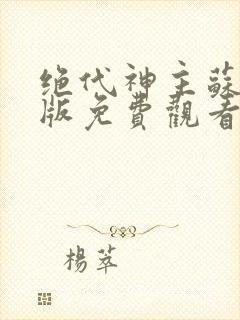 绝代神主蘇
版免費觀看
楊萃